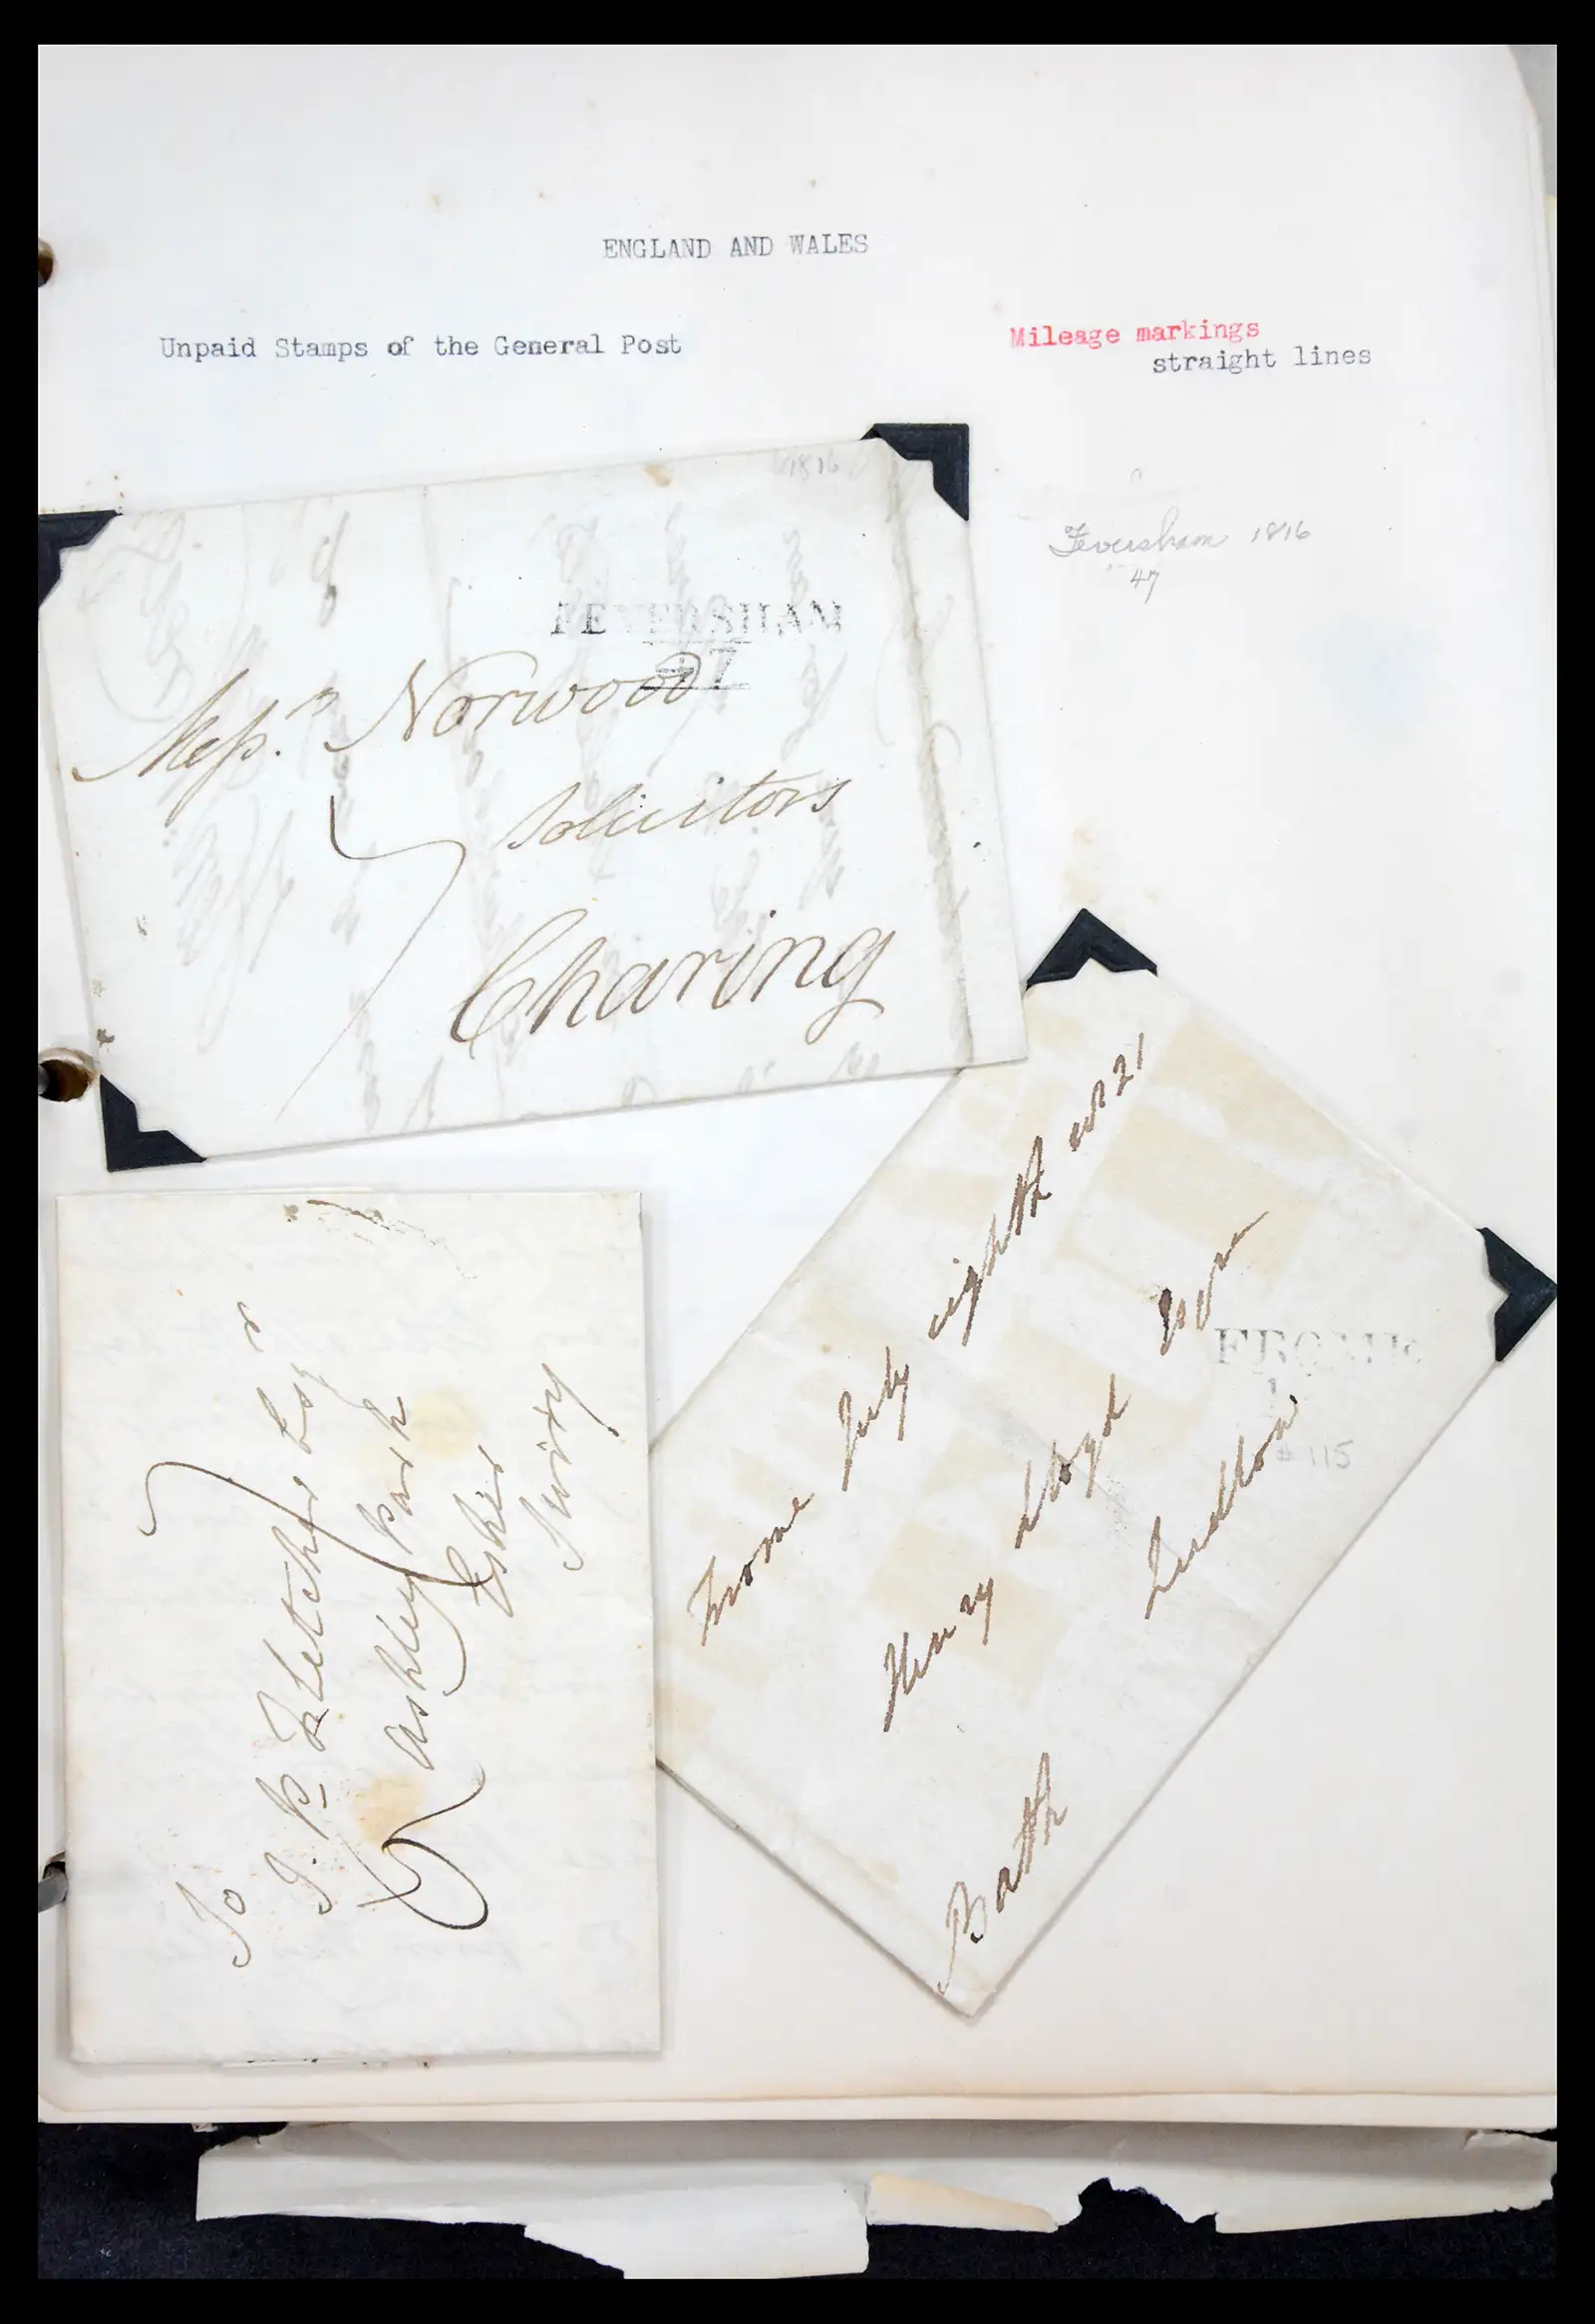 ENGLAND AND WALES
Unpaid Stamps of the General Post
Mileage markings
straight lines
1816
Feversham 1816
47
FEVERSHAM
47
Messrs Norwood
Solicitors
Charing
To
J. P. Fletcher Esqr
Ashley Park
Esher
Surry
Frome July eighth
Henry Lloyd
Bath
FROME
115